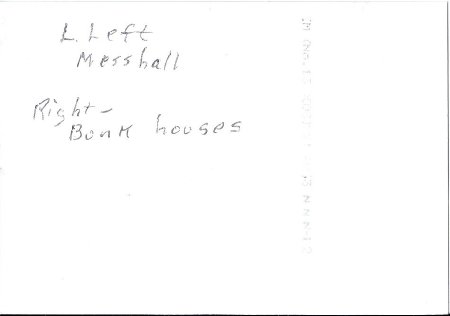 L. Left
Messhall
Right -
Bunk houses